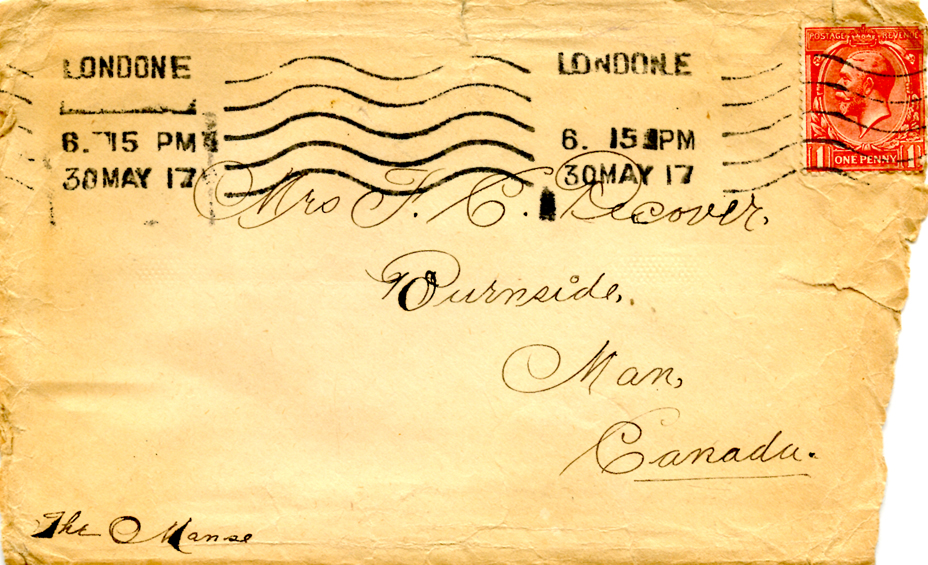 LONDON E
6. 15 PM
30 MAY 17
LONDON. E
6. 15 PM
30 MAY 17
POSTAGE REVENUE
1 ONE PENNY 1
Mrs F. C.
Burnside,
Man,
Canada.
The Manse